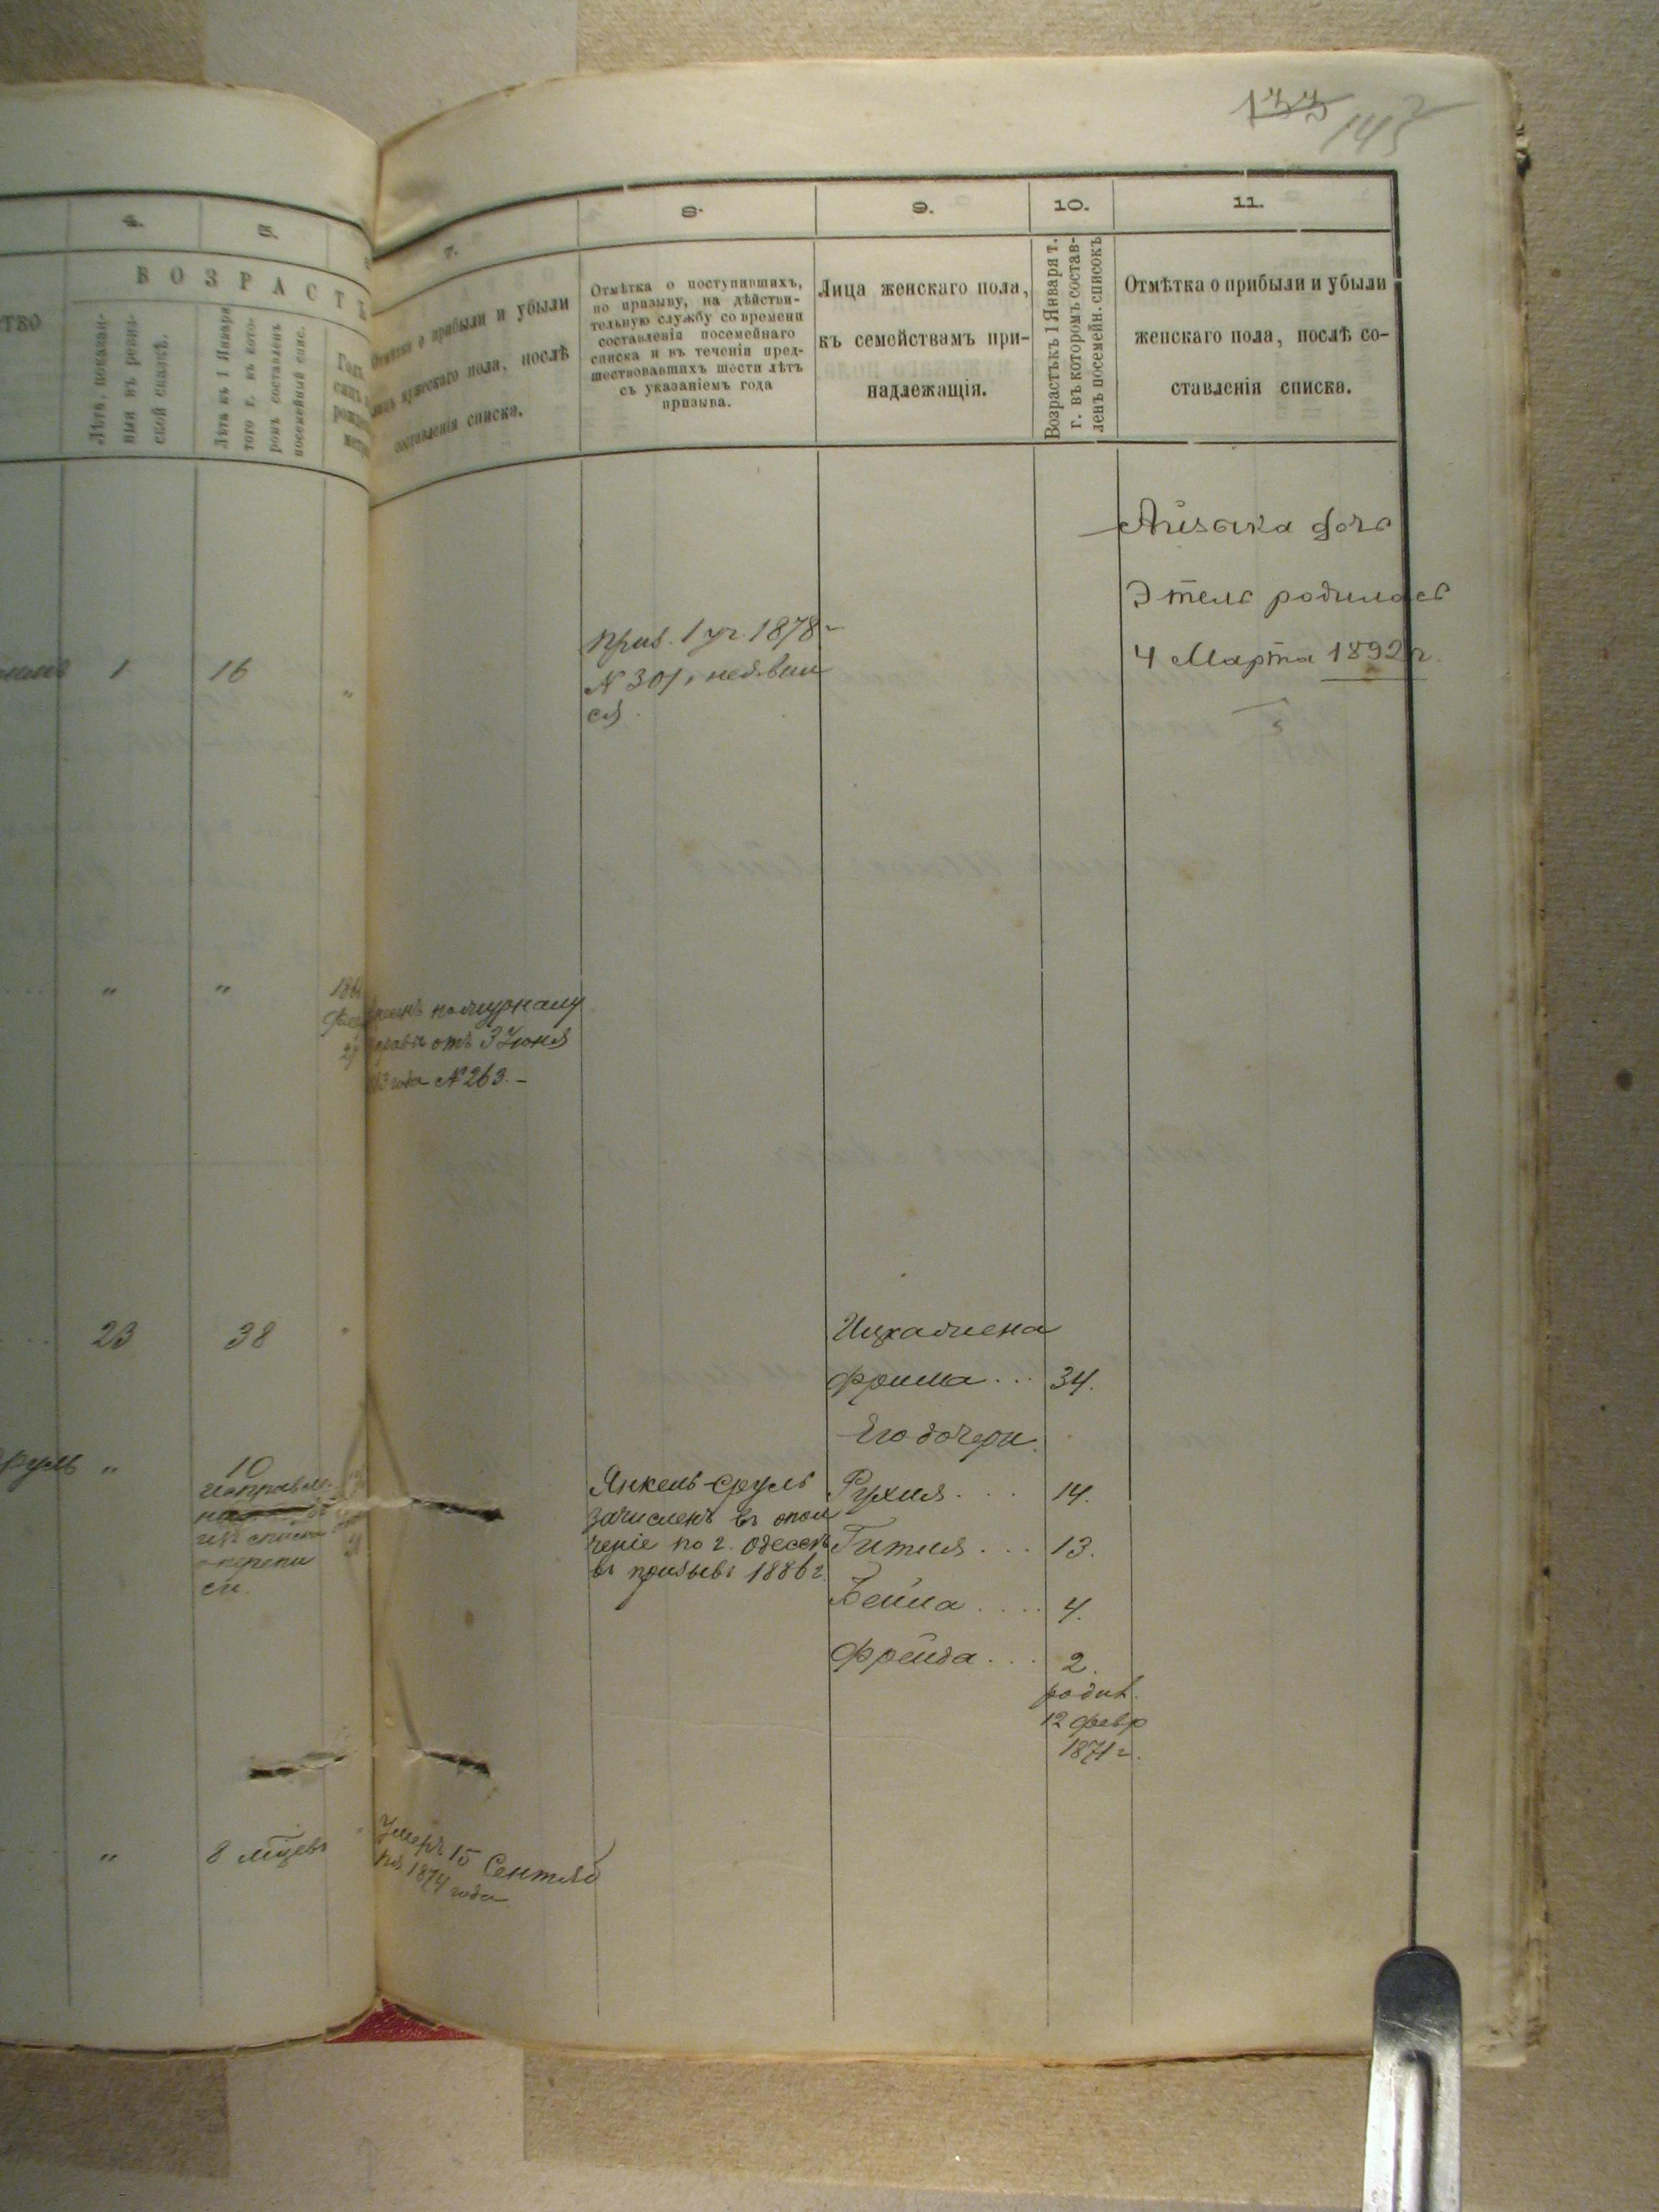 133
4.
5.
7.
8.
9.
10.
11.
ВОЗРАСТЪ
ТВО
Лѣта, показан-
ныя въ ревиз-
ской сказкѣ.
Лѣта къ 1 Января
того г. въ кото-
ромъ составленъ
посемейный спис.
Отмѣтка о прибыли и убыли
лицъ мужескаго пола, послѣ
составленія списка.
Отмѣтка о поступившихъ,
по призыву, на дѣйстви-
тельную службу со времени
составленія посемейнаго
списка и въ теченіи пред-
шествовавшихъ шести лѣтъ
съ указаніемъ года
призыва.
Лица женскаго пола,
къ семействамъ при-
надлежащія.
Возрастъ къ 1 Января т.
г. въ которомъ состав-
ленъ посемейн. списокъ
Отмѣтка о прибыли и убыли
женскаго пола, послѣ со-
ставленія списка.
Айзика дочь
Этель родилась
4 Марта 1892 г.
1
16
"
Приз. 1 уч. 1878 г
№ 301, неявил
ся.
"
"
по журналу
отъ 3 Июня
3 года № 263. -
23
38
"
Ицка жена
Фрима . . . 34.
Его дочери.
Рухля . . . 14.
Гитля . . . 13.
Бейла . . . . 4.
Фрейда . . . 2.
родил.
12 февр
1871 г.
руль
"
10
исправл.
изъ списка
перепи
си.
Янкель-Сруль
зачисленъ въ опол
ченіе по г. Одессѣ
въ призывъ 1886 г.
"
8 мѣцевъ
Умеръ 15 Сентяб
ря 1874 года